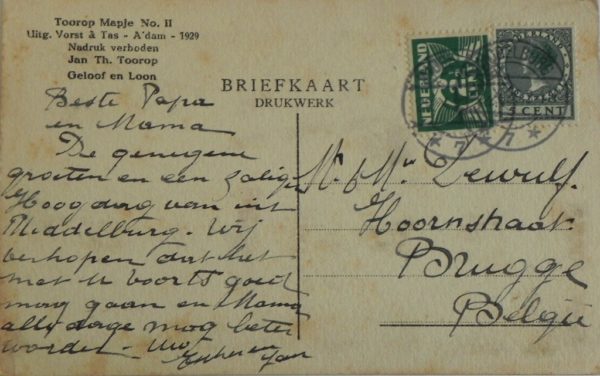 Toorop Mapje No. II
Uitg. Vorst & Tas - A'dam - 1929
Nadruk verboden
Jan Th. Toorop
Geloof en Loon
BRIEFKAART
DRUKWERK
NEDERLAND
2½ CENT
NEDERLAND
5 CENT
Beste Papa
en Mama
De genegene
groeten en een zalige
Hoogdag van uit
Middelburg. Wij
verhopen dat het
met u voorts goed
mag gaan en Mama
alle dage mog beter
worden.
Mr. & Mw. Dewulf.
Hoornstraat
Brugge
België